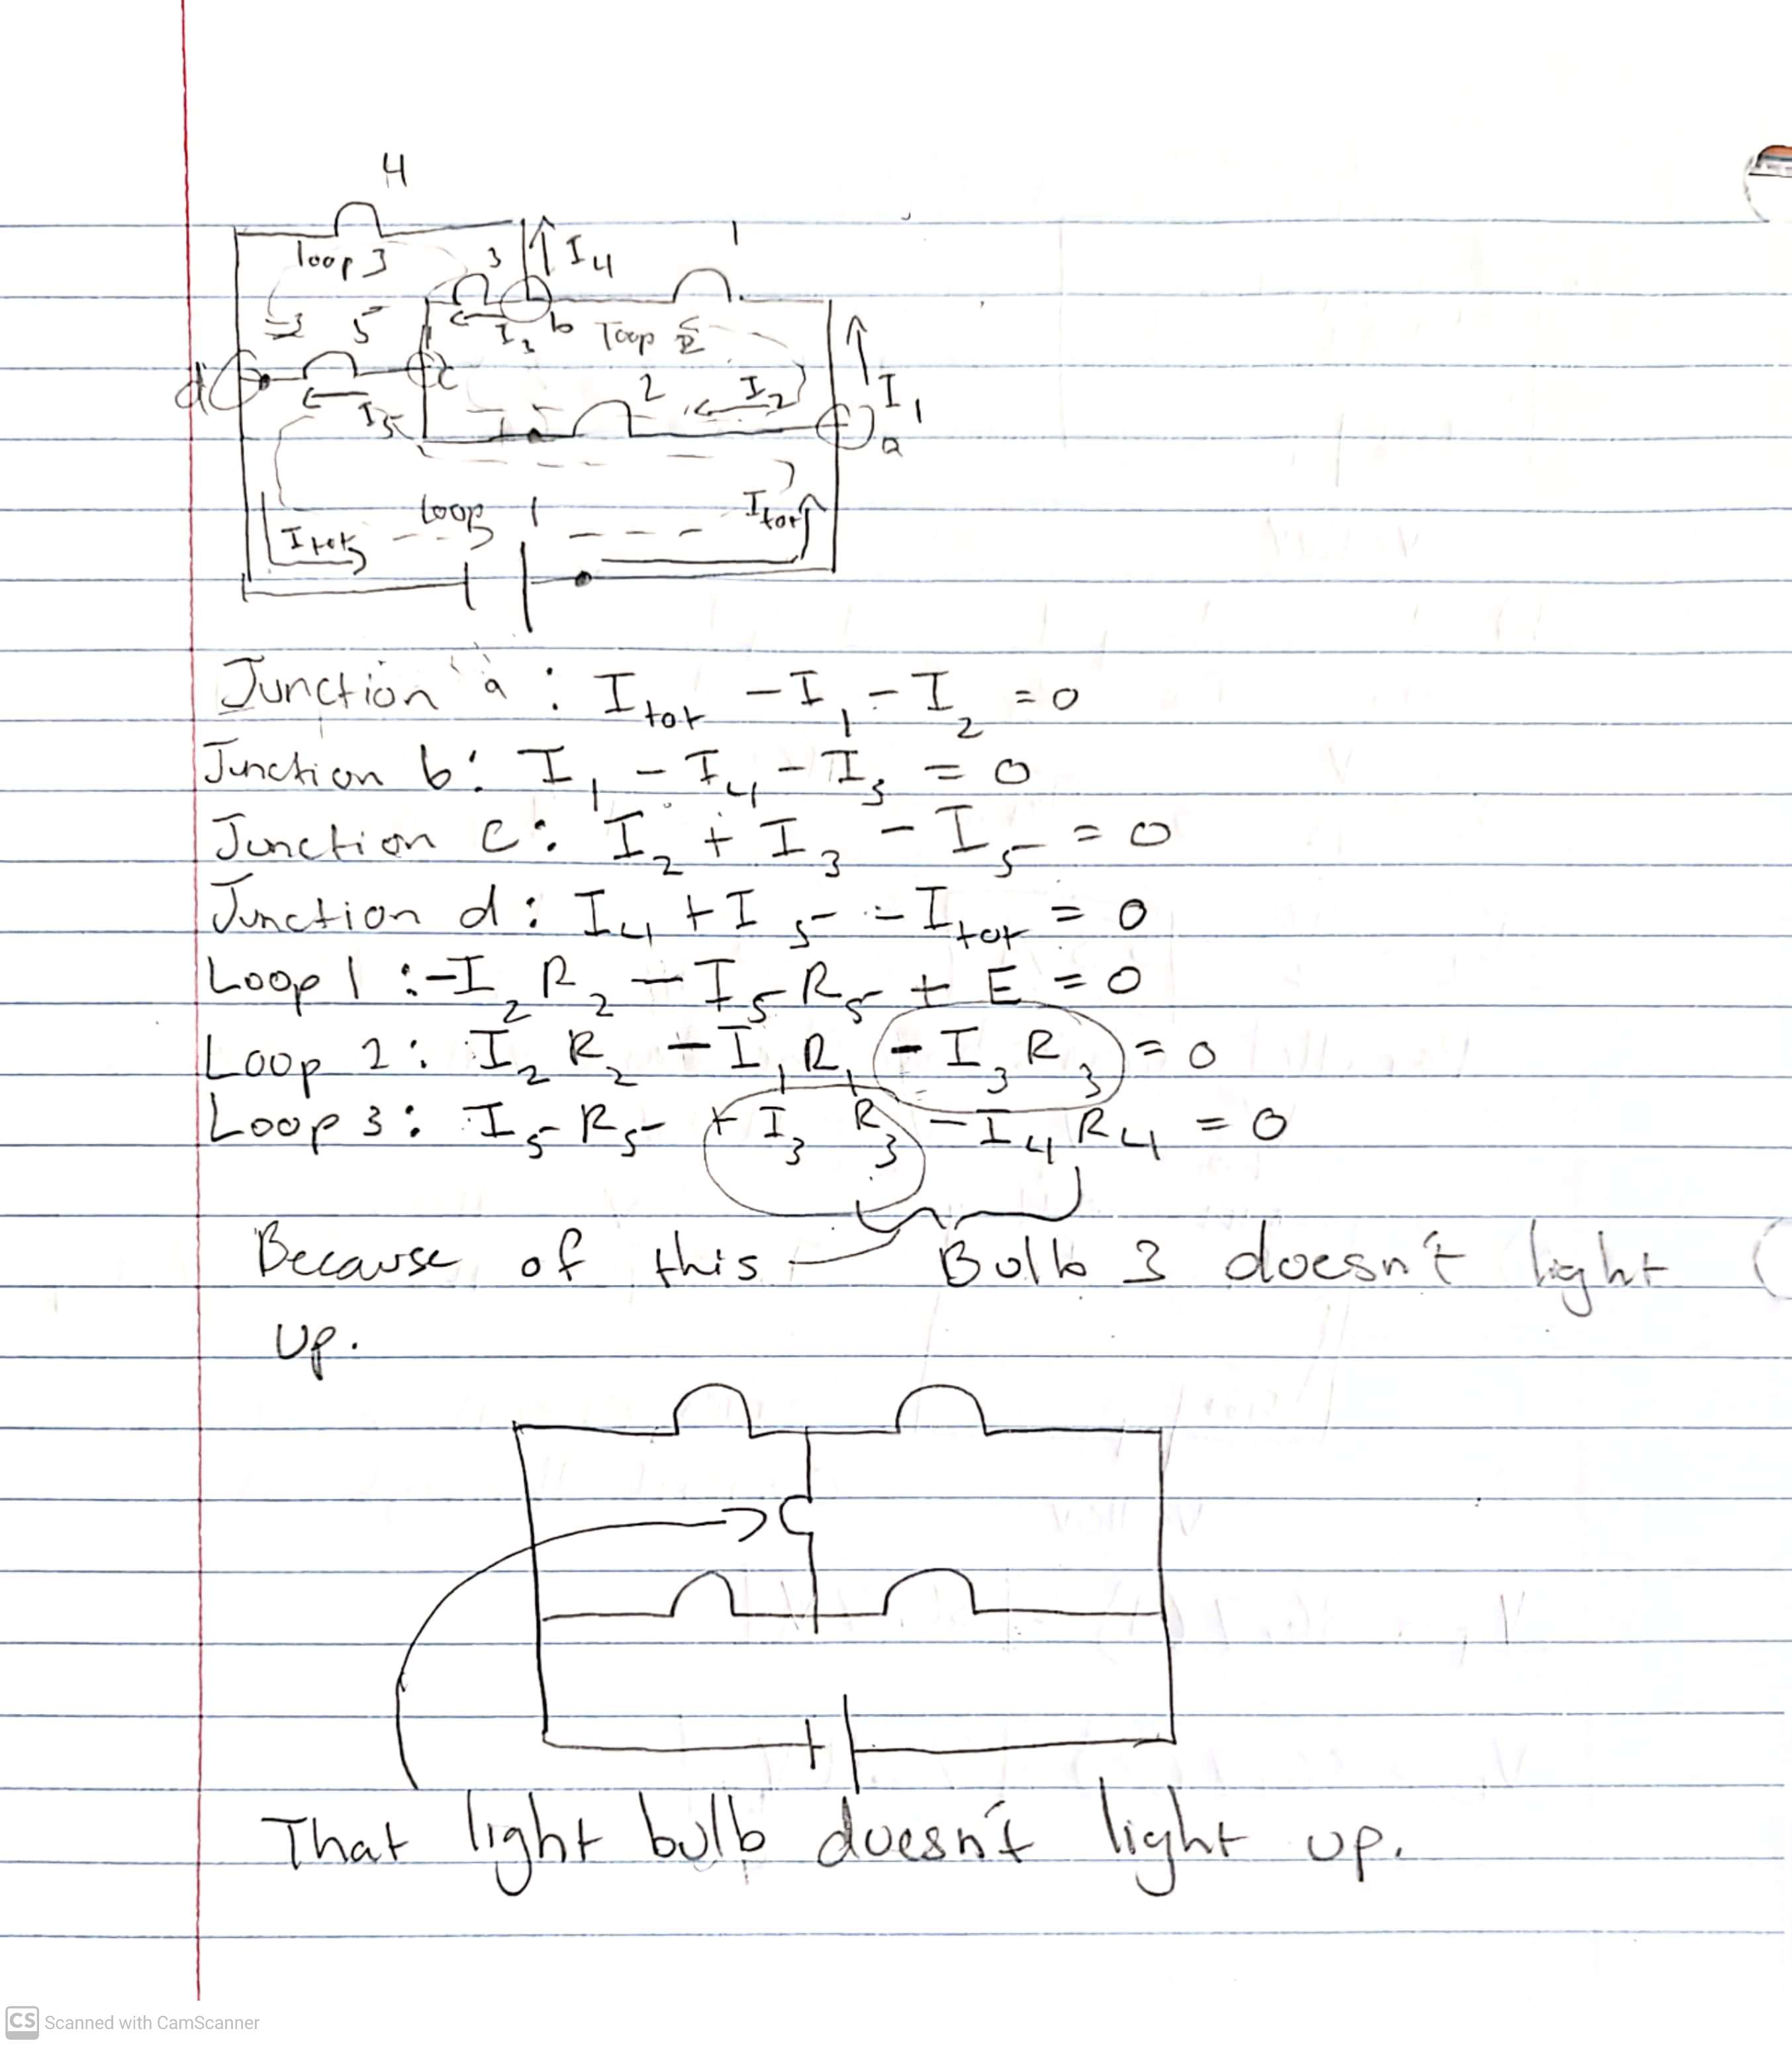 4
1
loop 3
3
I₄
5
I₃
b
loop 2
d
c
2
I₂
I₁
I₅
a
loop 1
I tot
I tot
Junction a : I tot - I₁ - I₂ = 0
Junction b: I₁ - I₄ - I₃ = 0
Junction c: I₂ + I₃ - I₅ = 0
Junction d: I₄ + I₅ - I tot = 0
Loop 1 : -I₂R₂ - I₅R₅ + E = 0
Loop 2: I₂R₂ - I₁R₁ - I₃R₃ = 0
Loop 3: I₅R₅ + I₃R₃ - I₄R₄ = 0
Because of this Bulb 3 doesn't light
up.
That light bulb doesn't light up.
CS Scanned with CamScanner